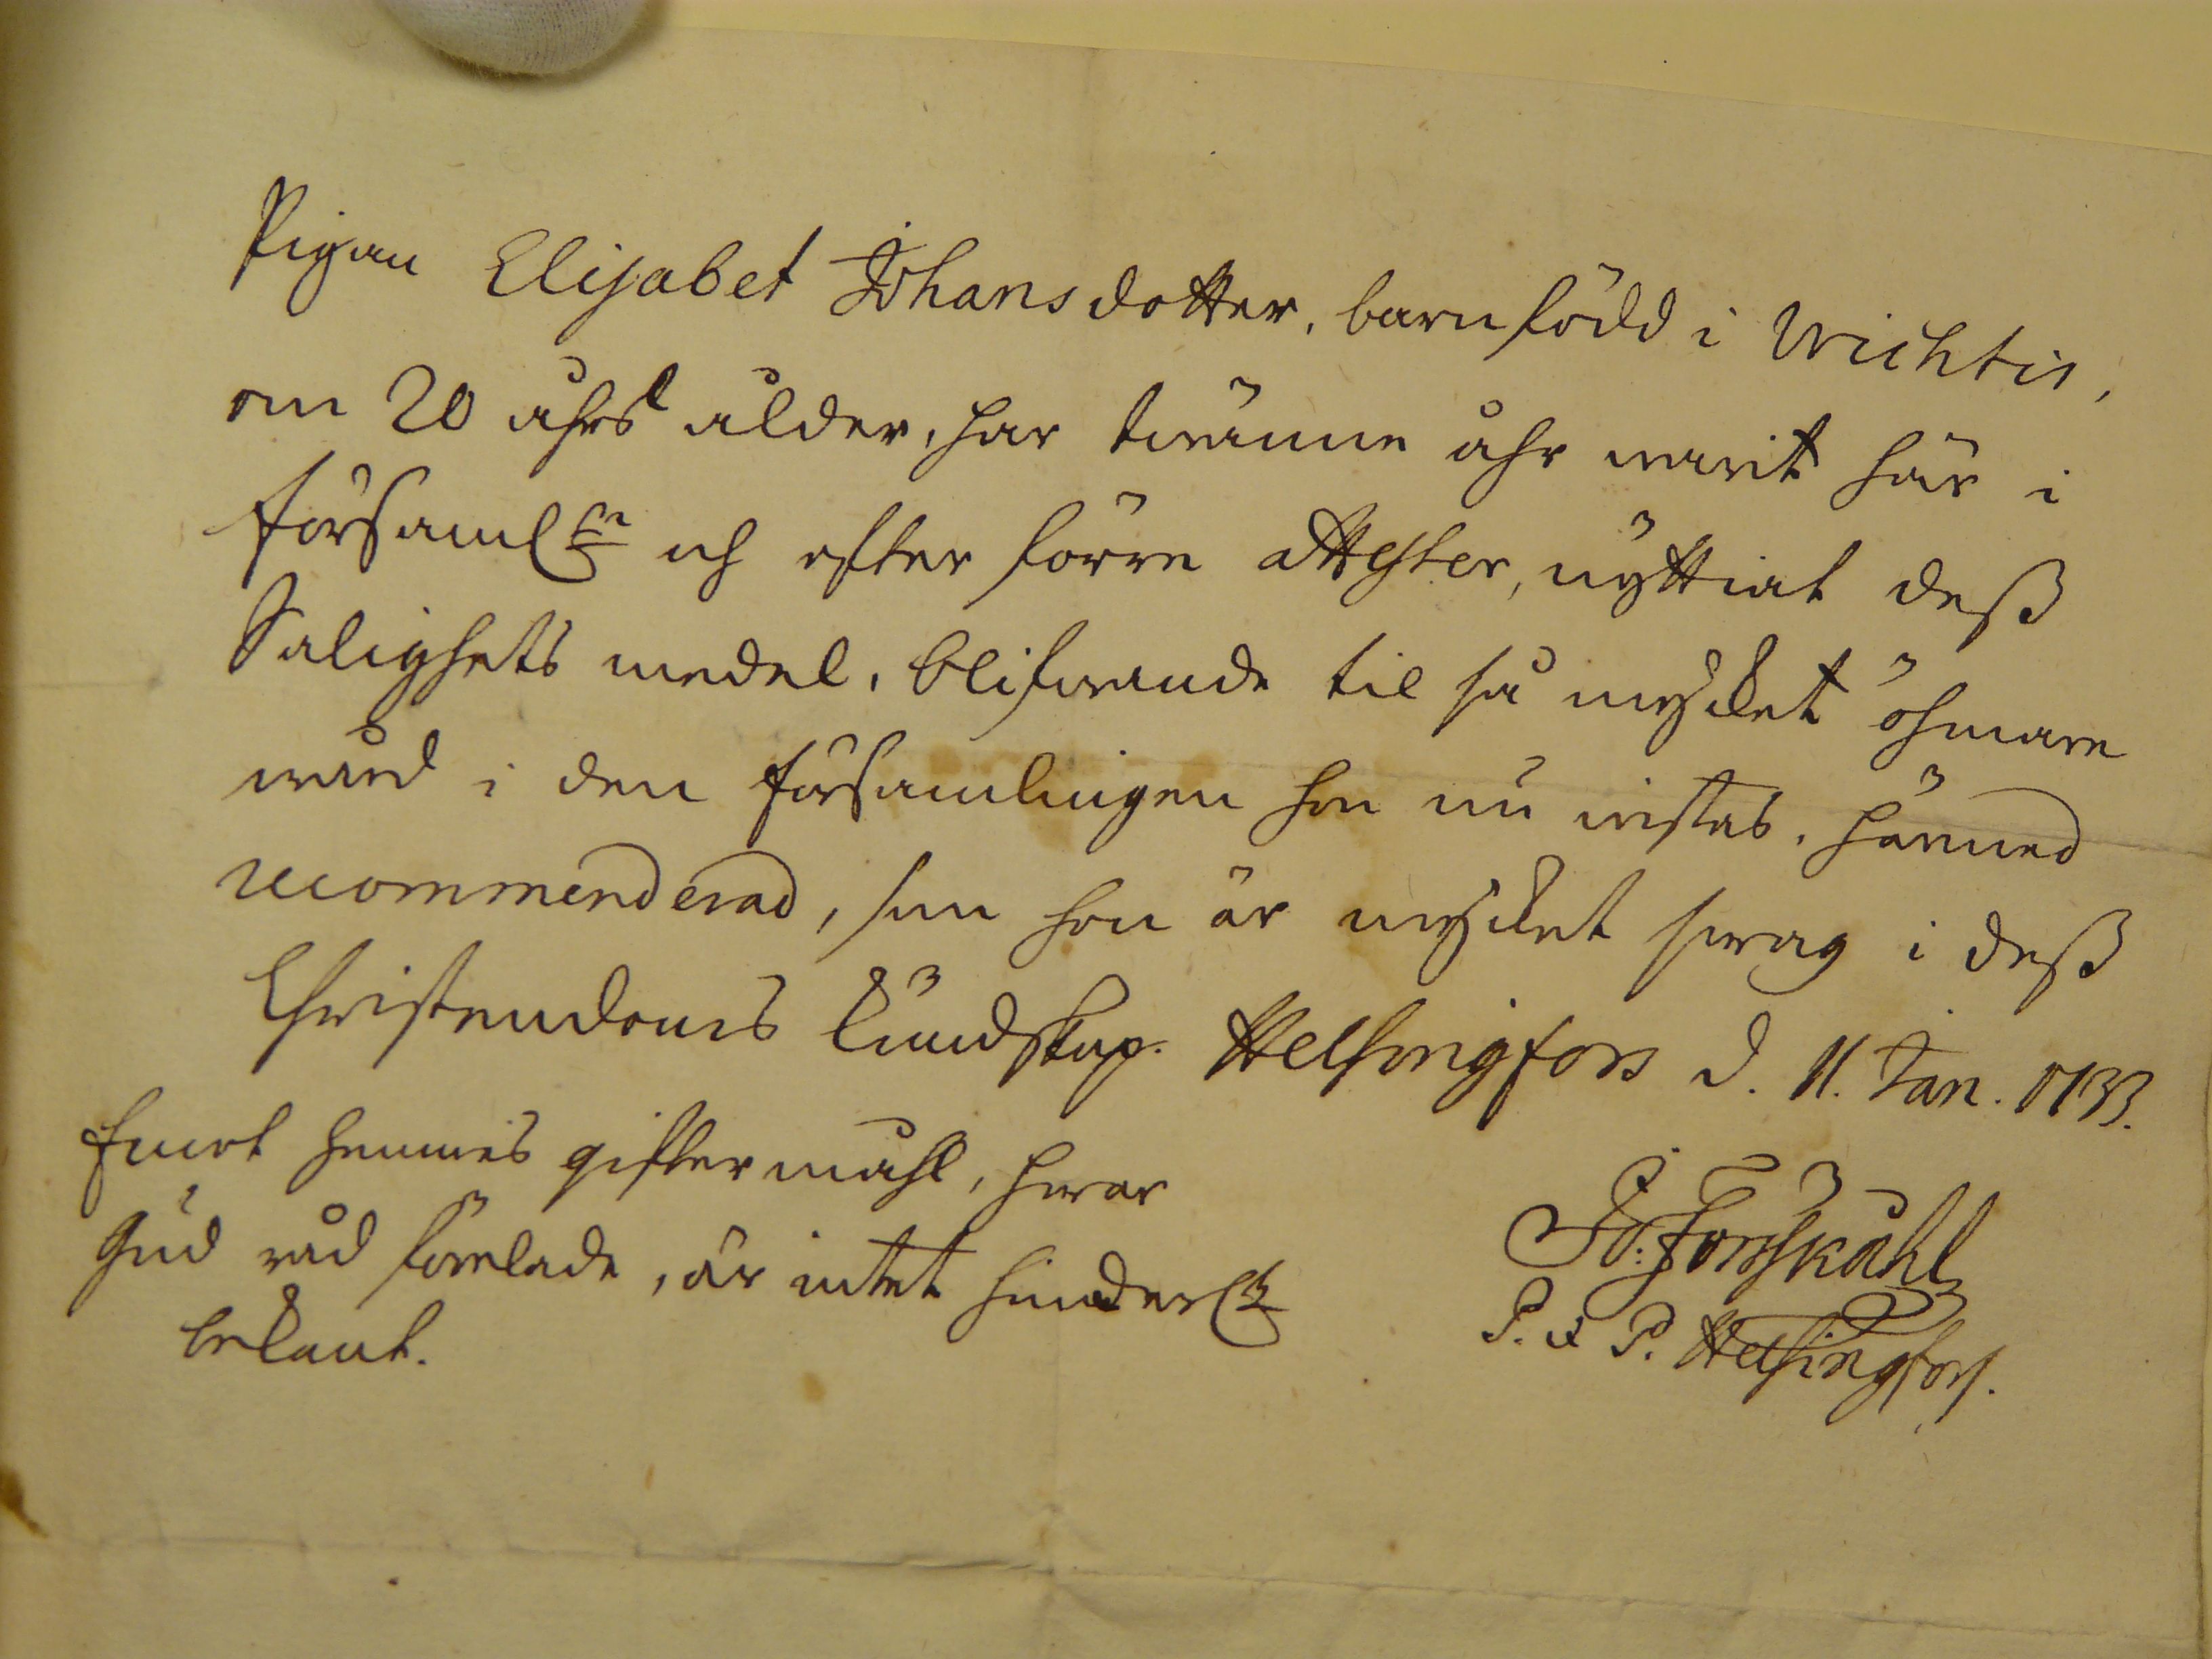 Pigan Elisabet Johansdotter, barnfödd i Wichtis,
om 20 åhrs ålder, har twänne åhr warit här i
församl:n och efter förre attester, nyttiat deß
Salighets medel, blifwande til så mycket ömare
wård i den församlingen hon nu wistas, härmed
recommenderad, som hon är mycket swag i deß
Christendoms kundskap. Helsingfors d. 11. Jan. 1733.
Emot hennes giftermåhl, hwar
Gud råd förelade, är intet hinder
bekant.
J. Forskåhl
P. & P. Helsingfors.